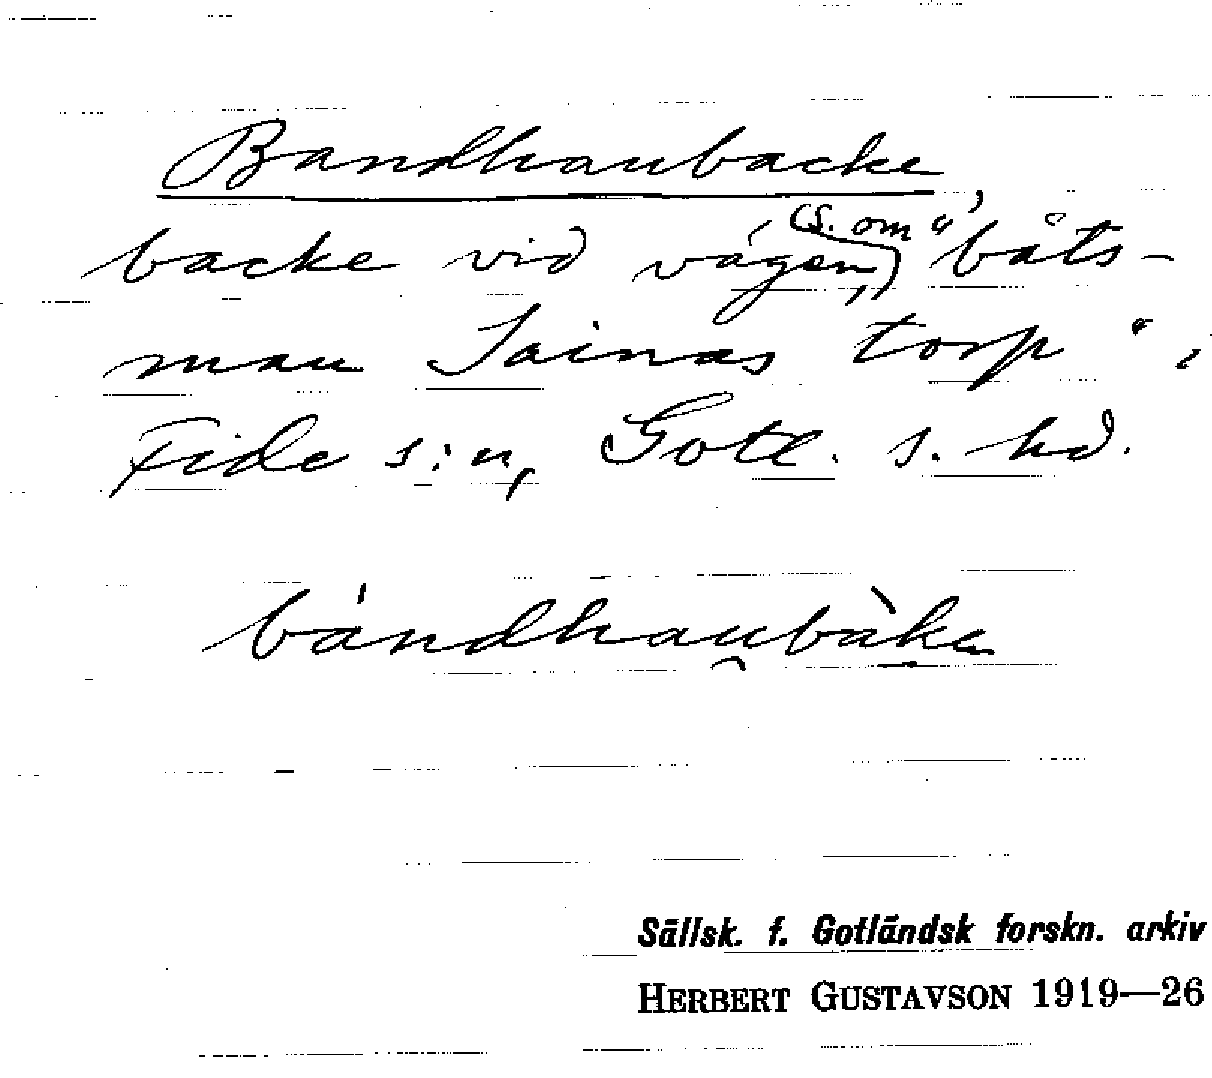 Bandhaubacke,
backe vid vägen, (s. om) "båts-
man Jainas torp",
Fide s:n, Gotl. s. hd.
bándhau̯bàka
Sällsk. f. Gotländsk forskn. arkiv
HERBERT GUSTAVSON 1919—26